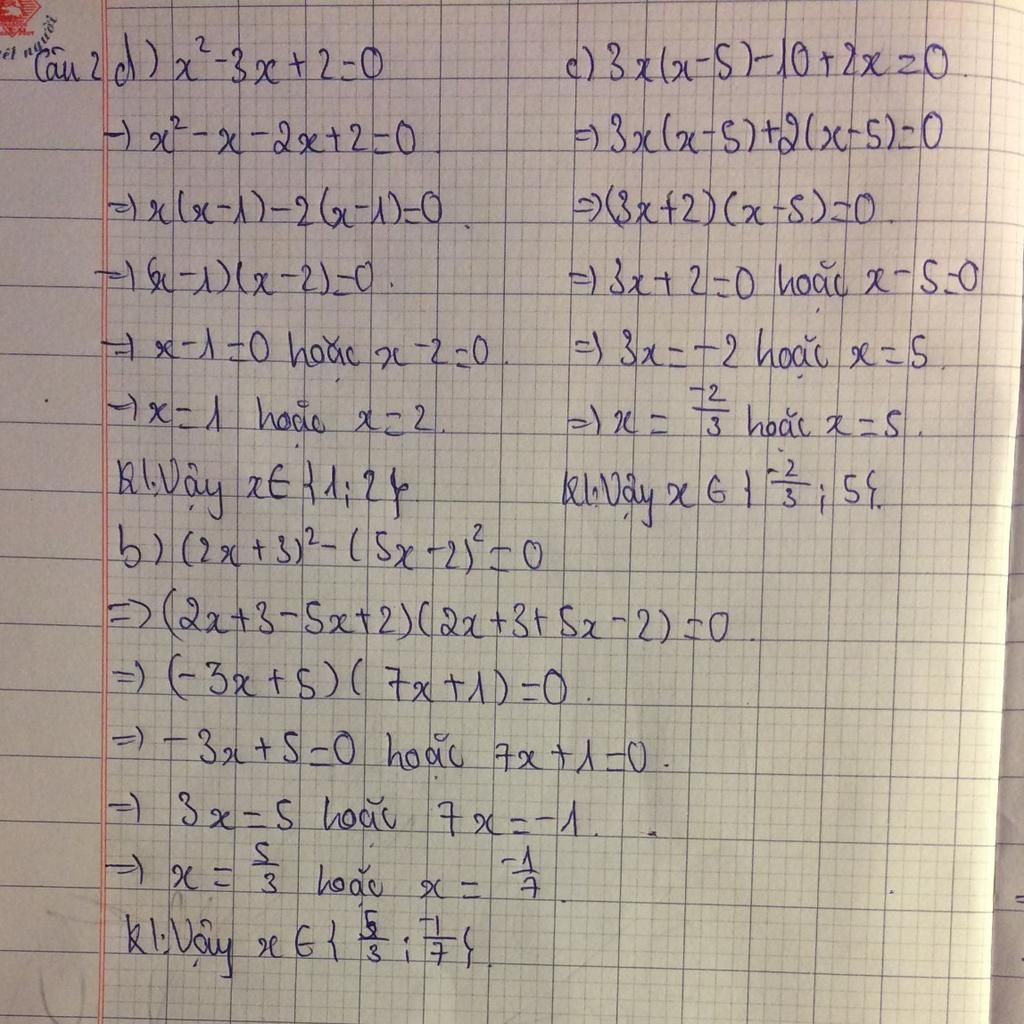 ết người
Câu 2 d) x² - 3x + 2 = 0
→ x² - x - 2x + 2 = 0
⇒ x(x-1) - 2(x-1) = 0.
⇒ (x-1)(x-2) = 0.
⇒ x-1 = 0 hoặc x-2 = 0.
→ x = 1 hoặc x = 2.
Kl: Vậy x ∈ {1; 2}.
c) 3x(x-5) - 10 + 2x = 0.
⇒ 3x(x-5) + 2(x-5) = 0
⇒ (3x+2)(x-5) = 0.
⇒ 3x + 2 = 0 hoặc x - 5 = 0
⇒ 3x = -2 hoặc x = 5.
⇒ x = -2/3 hoặc x = 5.
Kl: Vậy x ∈ {-2/3; 5}.
b) (2x+3)² - (5x-2)² = 0
⇒ (2x+3-5x+2)(2x+3+5x-2) = 0.
⇒ (-3x+5)(7x+1) = 0.
⇒ -3x+5 = 0 hoặc 7x+1 = 0.
⇒ 3x = 5 hoặc 7x = -1.
⇒ x = 5/3 hoặc x = -1/7.
Kl: Vậy x ∈ {5/3; -1/7}.